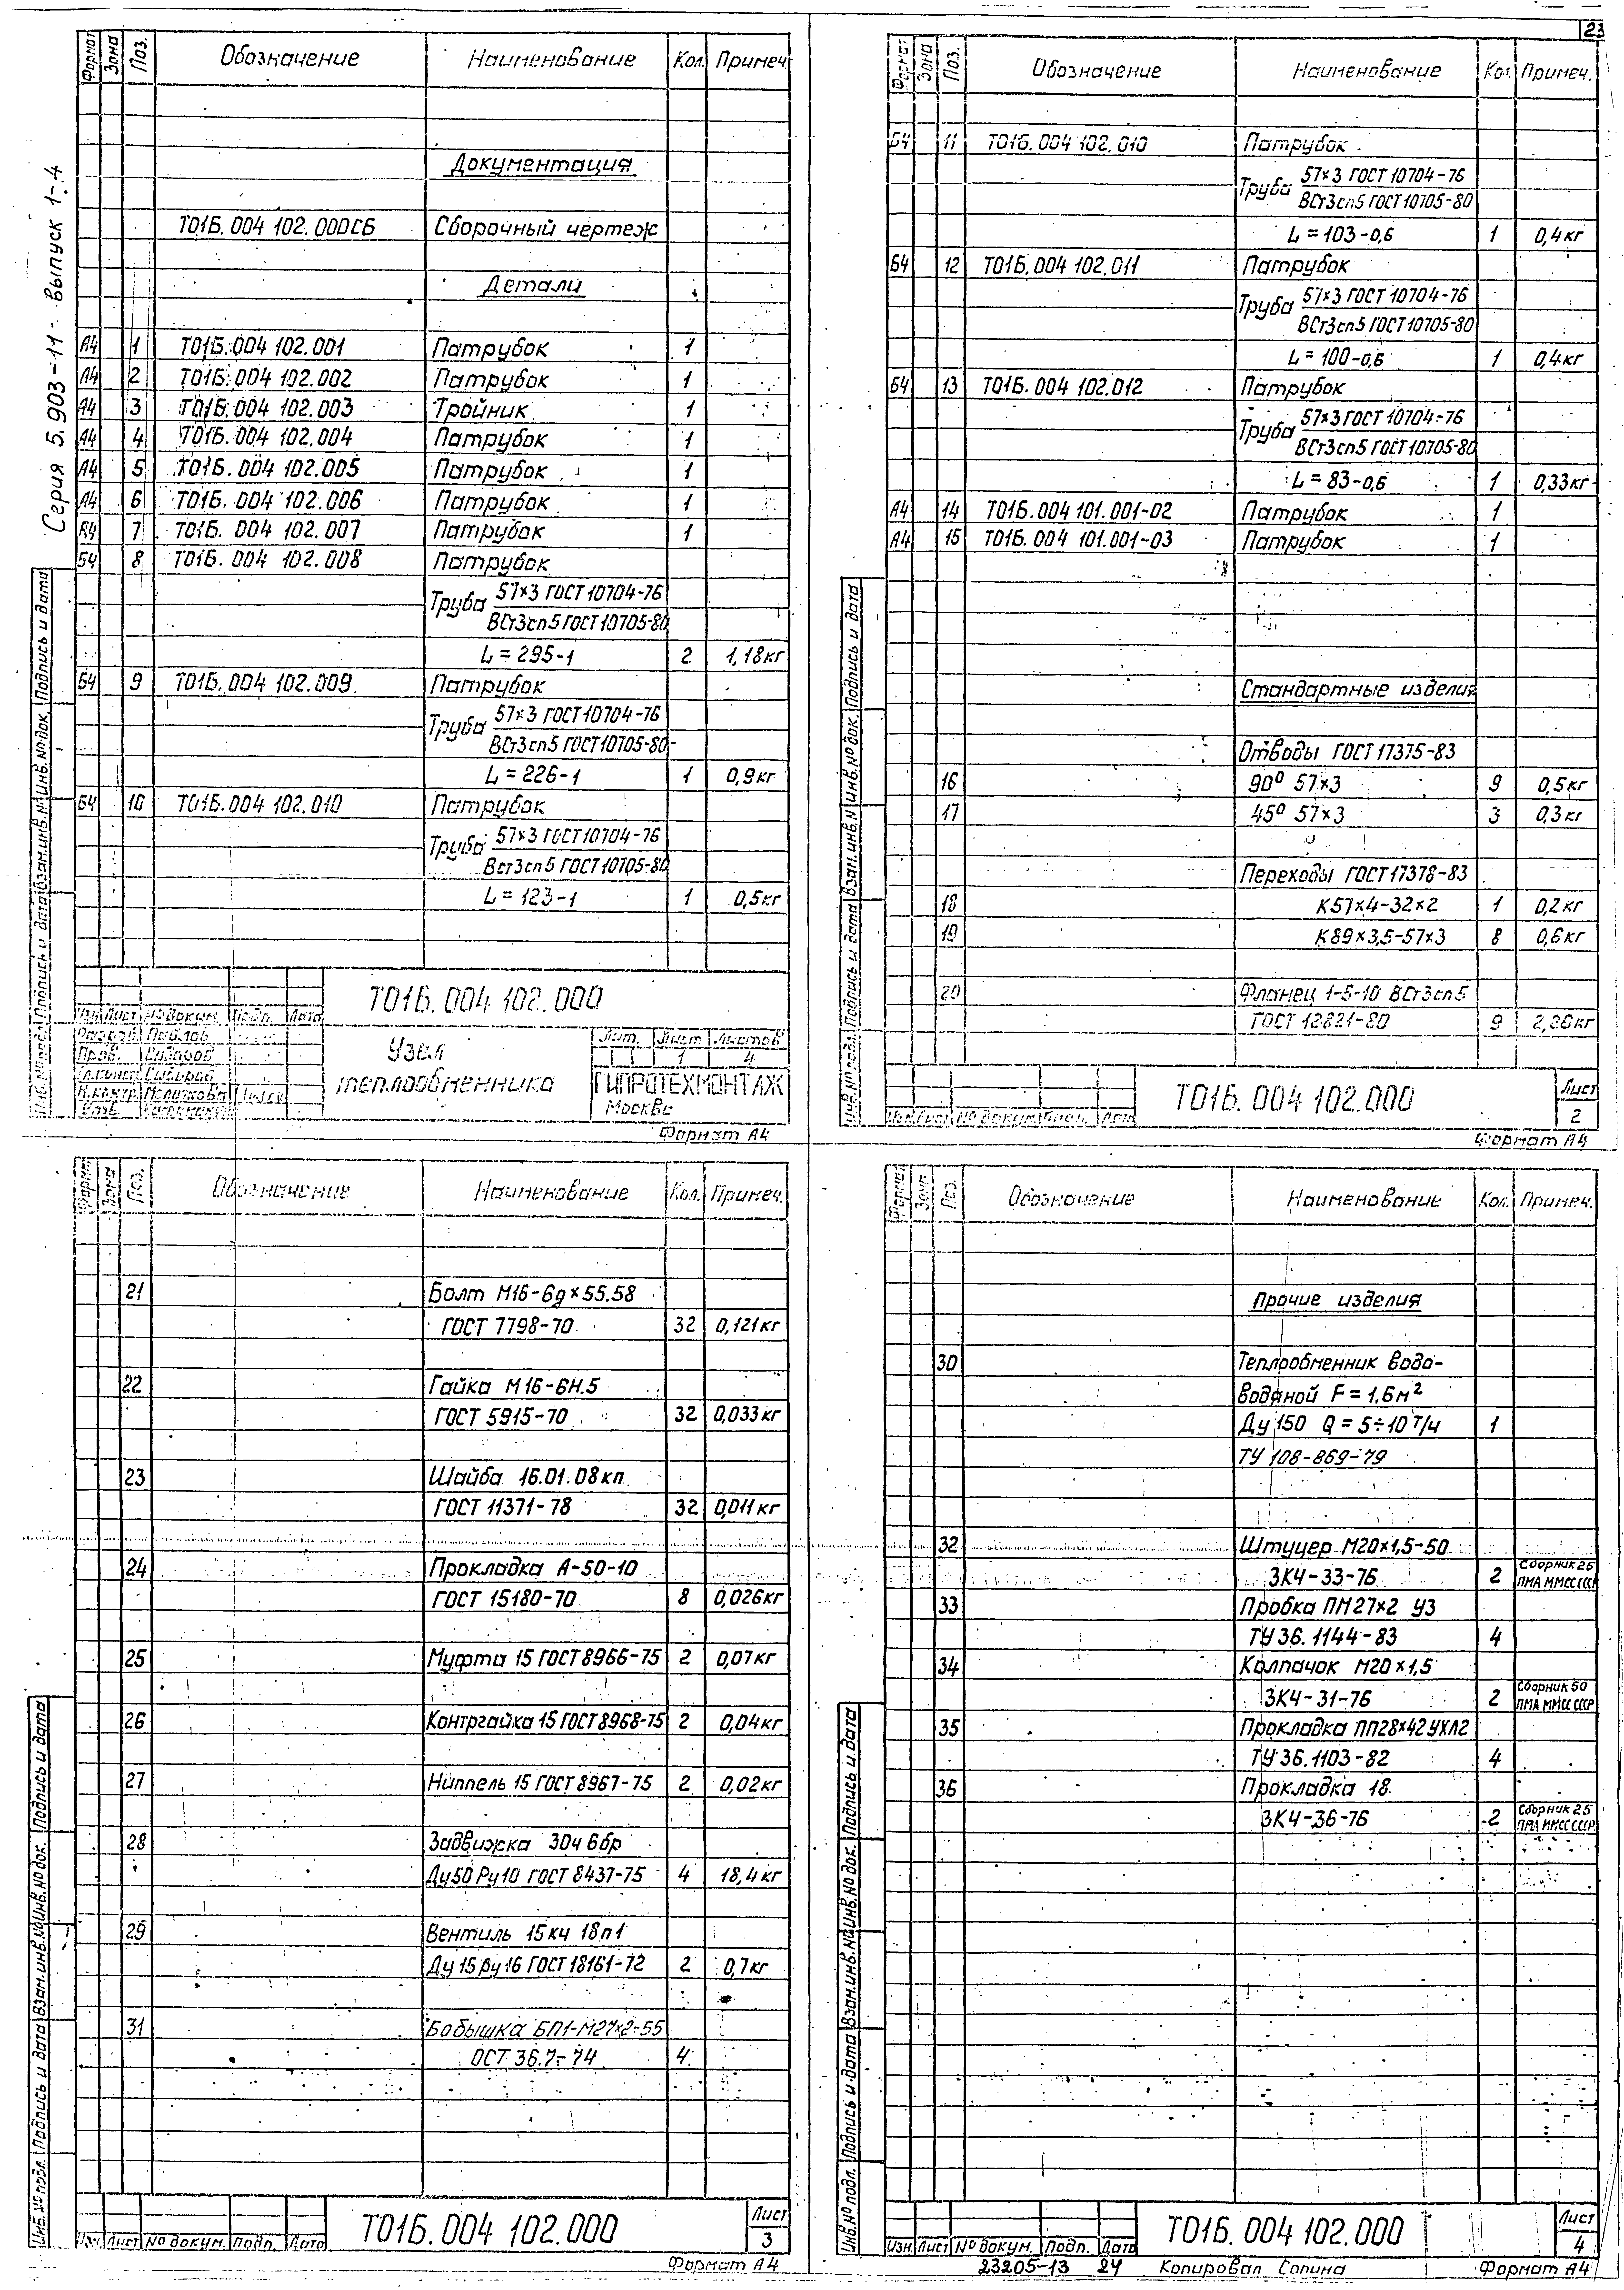 23
Серия 5.903-11- выпуск 1-4
Формат Зона Поз. Обозначение Наименование Кол. Примеч.
Документация
Т01Б.004 102.000СБ Сборочный чертеж
Детали
А4 1 Т01Б.004 102.001 Патрубок 1
А4 2 Т01Б.004 102.002 Патрубок 1
А4 3 Т01Б.004 102.003 Тройник 1
А4 4 Т01Б.004 102.004 Патрубок 1
А4 5 Т01Б.004 102.005 Патрубок 1
А4 6 Т01Б.004 102.006 Патрубок 1
А4 7 Т01Б.004 102.007 Патрубок 1
Б4 8 Т01Б.004 102.008 Патрубок
Труба 57×3 ГОСТ 10704-76
ВСт3сп5 ГОСТ 10705-80
L = 295-1 2 1,18кг
Б4 9 Т01Б.004 102.009 Патрубок
Труба 57×3 ГОСТ 10704-76
ВСт3сп5 ГОСТ 10705-80
L = 226-1 1 0,9кг
Б4 10 Т01Б.004 102.010 Патрубок
Труба 57×3 ГОСТ 10704-76
Вст3сп5 ГОСТ 10705-80
L = 123-1 1 0,5кг
Подпись и дата
Инв.№ док.
Взам.инв.№
Подпись и дата
Т01Б.004 102.000
Изм Лист № докум. Подп. Дата
Разраб. Павлов
Пров. Сидоров
Н.контр.
Утв.
Узел
теплообменника
Лит. Лист Листов
1 4
ГИПРОТЕХМОНТАЖ
Москва
Формат А4
Формат Зона Поз. Обозначение Наименование Кол. Примеч.
Б4 11 Т01Б.004 102.010 Патрубок
Труба 57×3 ГОСТ 10704-76
ВСт3сп5 ГОСТ 10705-80
L = 103-0,6 1 0,4кг
Б4 12 Т01Б.004 102.011 Патрубок
Труба 57×3 ГОСТ 10704-76
ВСт3сп5 ГОСТ 10705-80
L = 100-0,6 1 0,4кг
Б4 13 Т01Б.004 102.012 Патрубок
Труба 57×3 ГОСТ 10704-76
ВСт3сп5 ГОСТ 10705-80
L = 83-0,6 1 0,33кг
А4 14 Т01Б.004 101.001-02 Патрубок 1
А4 15 Т01Б.004 101.001-03 Патрубок 1
Стандартные изделия
Отводы ГОСТ 17375-83
16 90° 57×3 9 0,5кг
17 45° 57×3 3 0,3кг
Переходы ГОСТ 17378-83
18 К57×4-32×2 1 0,2кг
19 К89×3,5-57×3 8 0,6кг
20 Фланец 1-5-10 ВСт3сп5
ГОСТ 12821-80 9 2,26кг
Инв.№ подл. Подпись и дата Взам.инв.№ Инв.№ док. Подпись и дата
Изм Лист № докум. Подп. Дата
Т01Б.004 102.000
Лист
2
Формат А4
Формат Зона Поз. Обозначение Наименование Кол. Примеч.
21 Болт М16-6g×55.58
ГОСТ 7798-70 32 0,121кг
22 Гайка М16-6Н.5
ГОСТ 5915-70 32 0,033кг
23 Шайба 16.01.08кп
ГОСТ 11371-78 32 0,011кг
24 Прокладка А-50-10
ГОСТ 15180-70 8 0,026кг
25 Муфта 15 ГОСТ 8966-75 2 0,07кг
26 Контргайка 15 ГОСТ 8968-75 2 0,04кг
27 Ниппель 15 ГОСТ 8967-75 2 0,02кг
28 Задвижка 30ч6бр
Ду50 Ру10 ГОСТ 8437-75 4 18,4кг
29 Вентиль 15кч 18п1
Ду15 Ру16 ГОСТ 18161-72 2 0,7кг
31 Бобышка БП1-М27×2-55
ОСТ 36.7-74 4
Инв.№ подл. Подпись и дата Взам.инв.№ Инв.№ док. Подпись и дата
Изм. Лист № докум. Подп. Дата
Т01Б.004 102.000
Лист
3
Формат А4
Формат Зона Поз. Обозначение Наименование Кол. Примеч.
Прочие изделия
30 Теплообменник водо-
водяной F = 1,6м²
Ду 150 Q = 5÷10 т/ч 1
ТУ 108-869-79
32 Штуцер М20×1,5-50
ЗК4-33-76 2 Сборник 25
ПМА ММСС СССР
33 Пробка ПМ27×2 У3
ТУ 36.1144-83 4
34 Колпачок М20×1,5
ЗК4-31-76 2 Сборник 50
ПМА ММСС СССР
35 Прокладка ПП28×42 УХЛ2
ТУ 36.1103-82 4
36 Прокладка 18
ЗК4-36-76 2 Сборник 25
ПМА ММСС СССР
Инв.№ подл. Подпись и дата Взам.инв.№ Инв.№ док. Подпись и дата
Изм. Лист № докум. Подп. Дата
Т01Б.004 102.000
Лист
4
23205-13 24 Копировал Сопина Формат А4